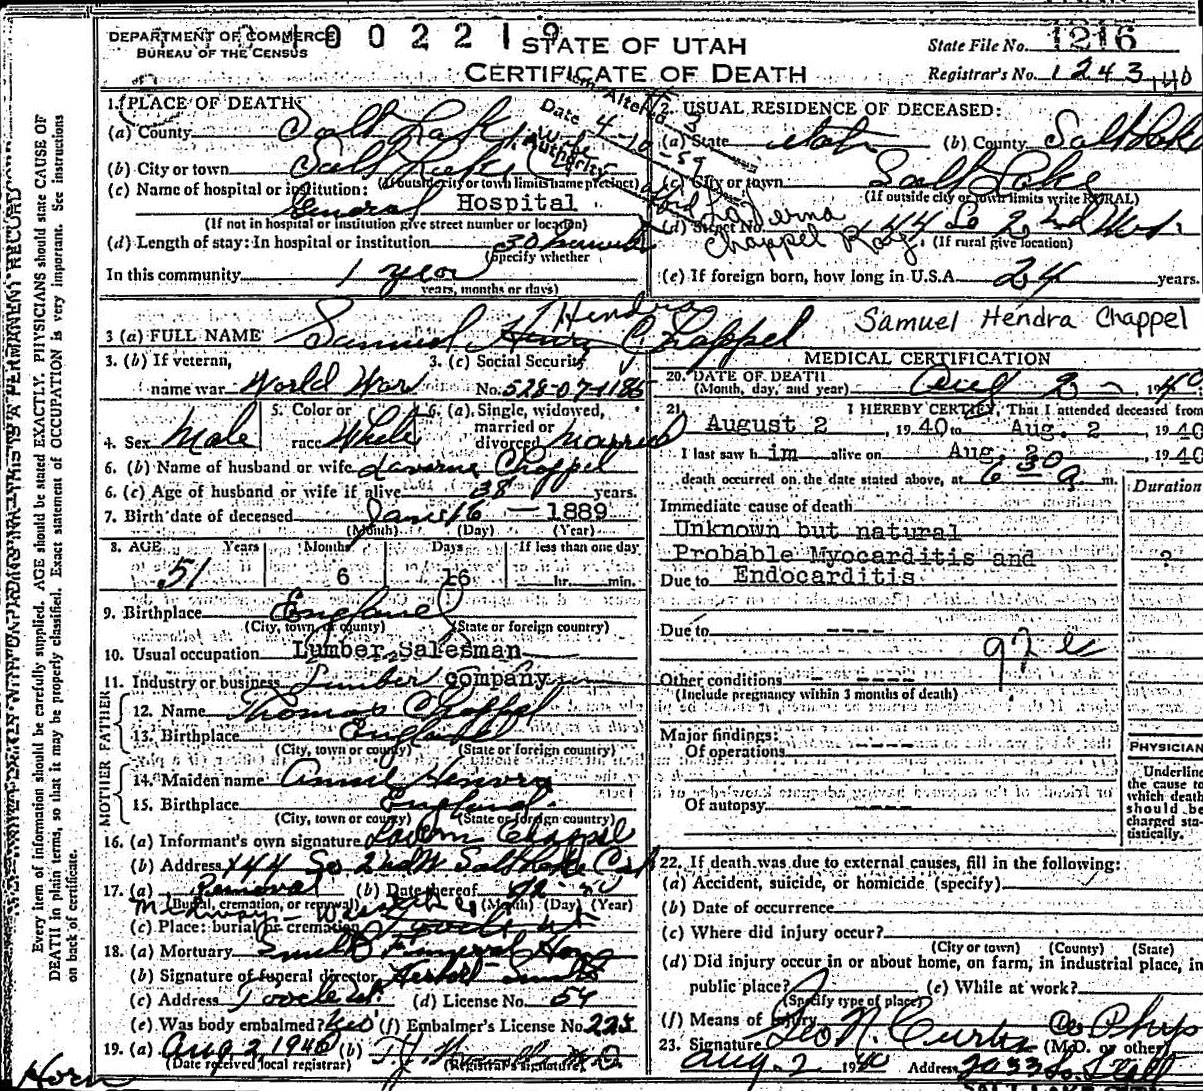 DEPARTMENT OF COMMERCE
BUREAU OF THE CENSUS
1002219
STATE OF UTAH
CERTIFICATE OF DEATH
State File No. 1216
Registrar's No. 1243
Every item of information should be carefully supplied. AGE should be stated EXACTLY. PHYSICIANS should state CAUSE OF
DEATH in plain terms, so that it may be properly classified. Exact statement of OCCUPATION is very important. See instructions
on back of certificate.
1. PLACE OF DEATH:
(a) County Salt Lake
(b) City or town Salt Lake
(If outside city or town limits name precinct)
(c) Name of hospital or institution:
General Hospital
(If not in hospital or institution give street number or location)
(d) Length of stay: In hospital or institution 30
(Specify whether
In this community 1 year
years, months or days)
Item Altered
Date 4-10-59
Authority
LaVerna
Chappel
2. USUAL RESIDENCE OF DECEASED:
(a) State Utah (b) County Salt Lake
(c) City or town Salt Lake
(If outside city or town limits write RURAL)
(d) Street No. 144 So 2nd West
(If rural give location)
(e) If foreign born, how long in U.S.A. 24 years.
3 (a) FULL NAME Samuel Henry Chappel
Hendra
Samuel Hendra Chappel
3. (b) If veteran, name war World War
3. (c) Social Security No. 528-07-1186
4. Sex Male
5. Color or race White
6. (a). Single, widowed, married or divorced Married
6. (b) Name of husband or wife Laverne Chappel
6. (c) Age of husband or wife if alive 38 years.
7. Birth date of deceased Jan 16 - 1889
(Month) (Day) (Year)
8. AGE Years Months Days If less than one day
51 6 16 hr. min.
9. Birthplace England
(City, town or county) (State or foreign country)
10. Usual occupation Lumber Salesman
11. Industry or business Lumber company
FATHER
12. Name Thomas Chappel
13. Birthplace England
(City, town or county) (State or foreign country)
MOTHER
14. Maiden name Annie
15. Birthplace England
(City, town or county) (State or foreign country)
16. (a) Informant's own signature Chappel
(b) Address 144 So 2nd W Salt Lake
17. (a) Removal (b) Date thereof
(Burial, cremation, or removal) (Month) (Day) (Year)
(c) Place: burial or cremation Tooele Ut
18. (a) Mortuary Smith Funeral Home
(b) Signature of funeral director
(c) Address Tooele Ut. (d) License No. 54
(e) Was body embalmed? Yes (f) Embalmer's License No. 225
19. (a) Aug 2, 1940 (b)
(Date received local registrar) (Registrar's signature)
MEDICAL CERTIFICATION
20. DATE OF DEATH
(Month, day, and year) Aug 2 - 1940
21. I HEREBY CERTIFY, That I attended deceased from
August 2, 1940 to Aug. 2, 1940
I last saw him alive on Aug. 2, 1940
death occurred on the date stated above, at 6 30 a. m.
Duration
Immediate cause of death
Unknown but natural
Probable Myocarditis and ?
Due to Endocarditis
Due to ----
Other conditions ----
(Include pregnancy within 3 months of death)
Major findings:
Of operations ----
Of autopsy ----
PHYSICIAN
Underline
the cause to
which death
should be
charged sta-
tistically.
22. If death was due to external causes, fill in the following:
(a) Accident, suicide, or homicide (specify)
(b) Date of occurrence
(c) Where did injury occur?
(City or town) (County) (State)
(d) Did injury occur in or about home, on farm, in industrial place, in
public place? (e) While at work?
(Specify type of place)
(f) Means of injury
23. Signature Geo N. Curtis Co Phys
(M.D. or other)
Aug. 2 1940 Address 2033 So State
Horn